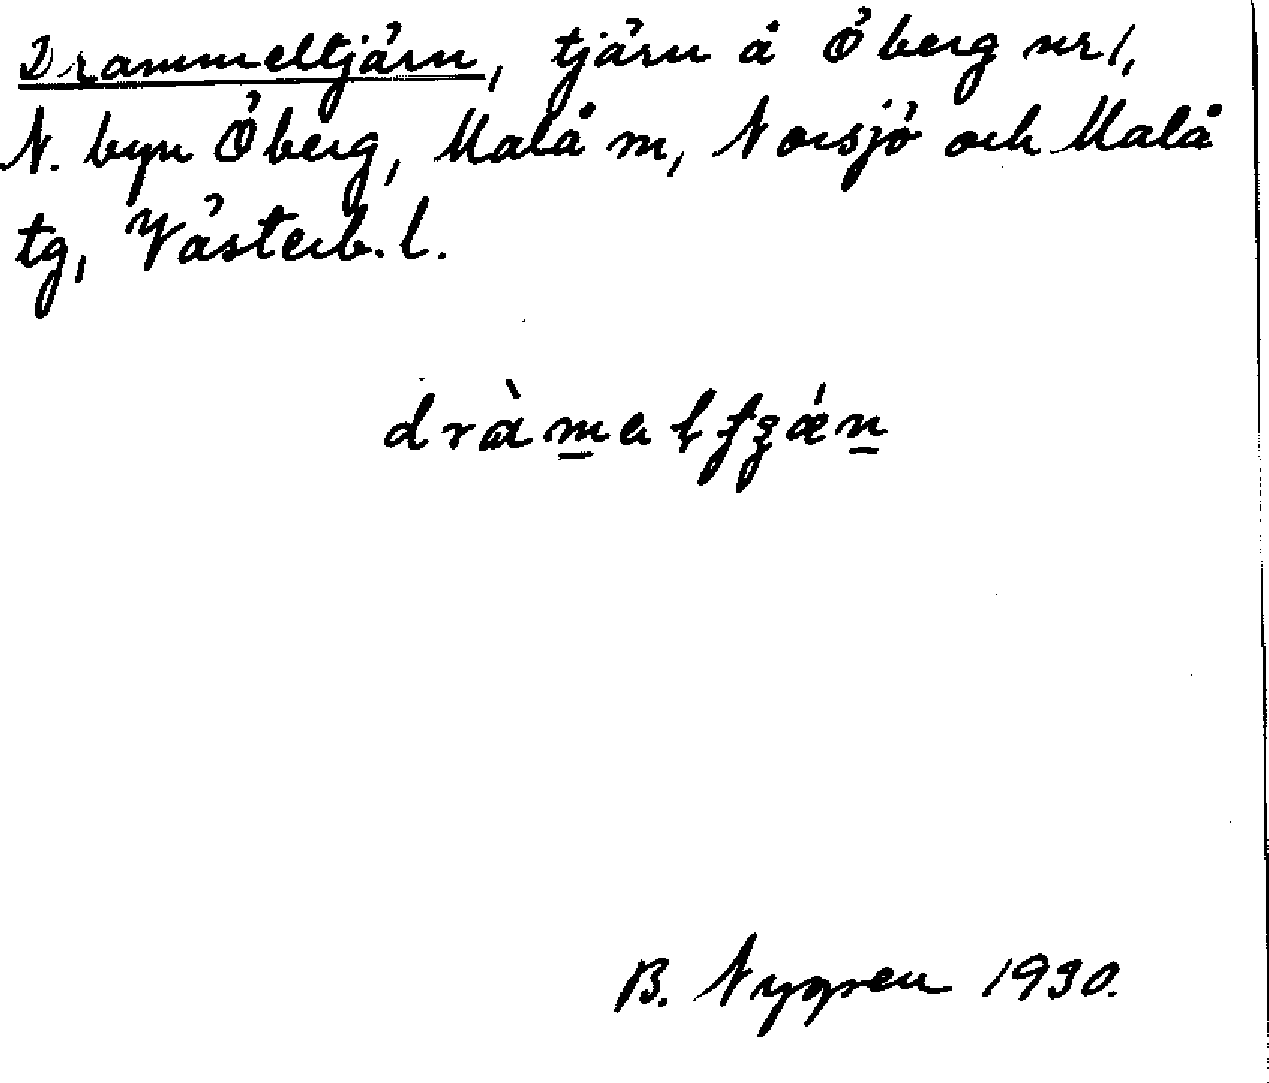 Drammeltjärn, tjärn å Öberg nr 1,
N. byn Öberg, Malå m, Norsjö och Malå
tg, Västerb. l.
B. Nygren 1930.